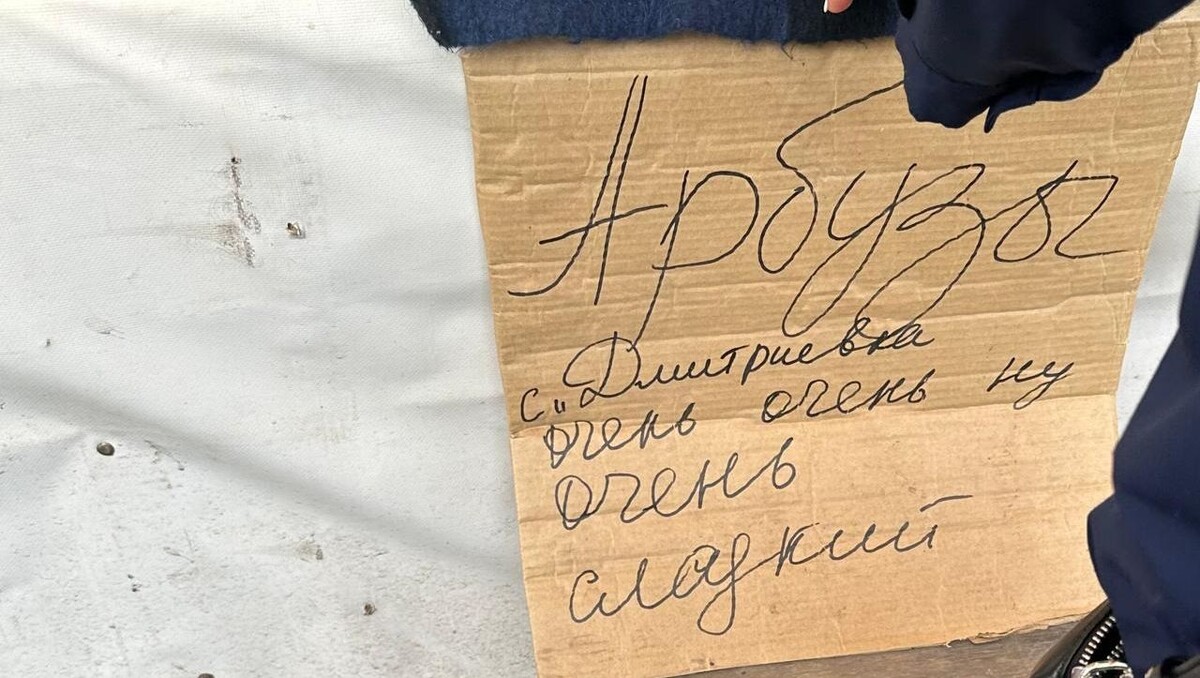 Арбузы
с. „Дмитриевка
очень очень ну
очень
сладкий